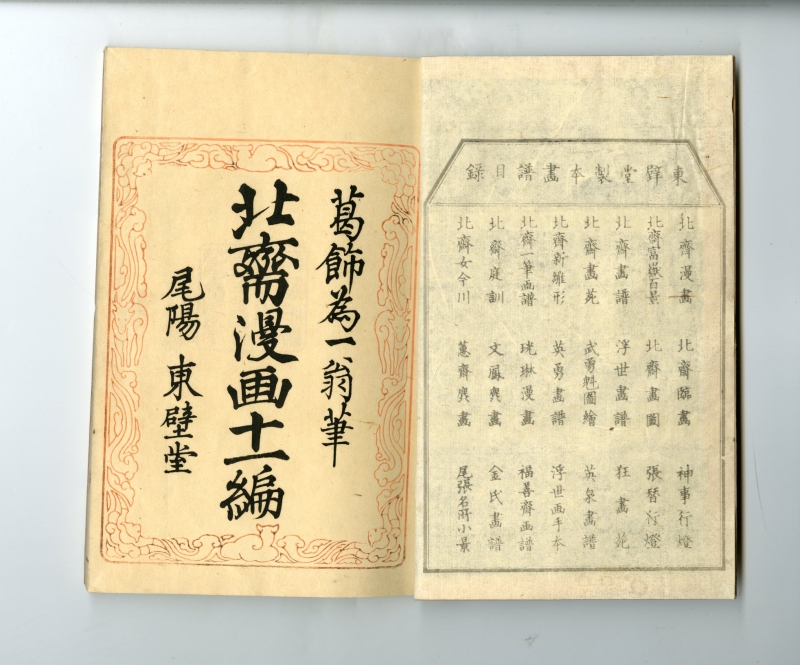 東壁堂製本畫譜目録
北齊漫畫 北齊臨畫 神事行燈
北齊富嶽百景 北齊畫圖 張替行燈
北齊畫譜 浮世畫譜 狂畫苑
北齊畫苑 武勇圖繪 英泉畫譜
北齊新雛形 英勇畫譜 浮世画手本
北齊一筆画譜 珖琳漫畫 福善齊画譜
北齊庭訓 文鳳麁畫 金氏畫譜
北齊女今川 蕙齊麁畫 尾張名所小景
葛飾為一翁筆
北齋漫画十一編
尾陽 東壁堂